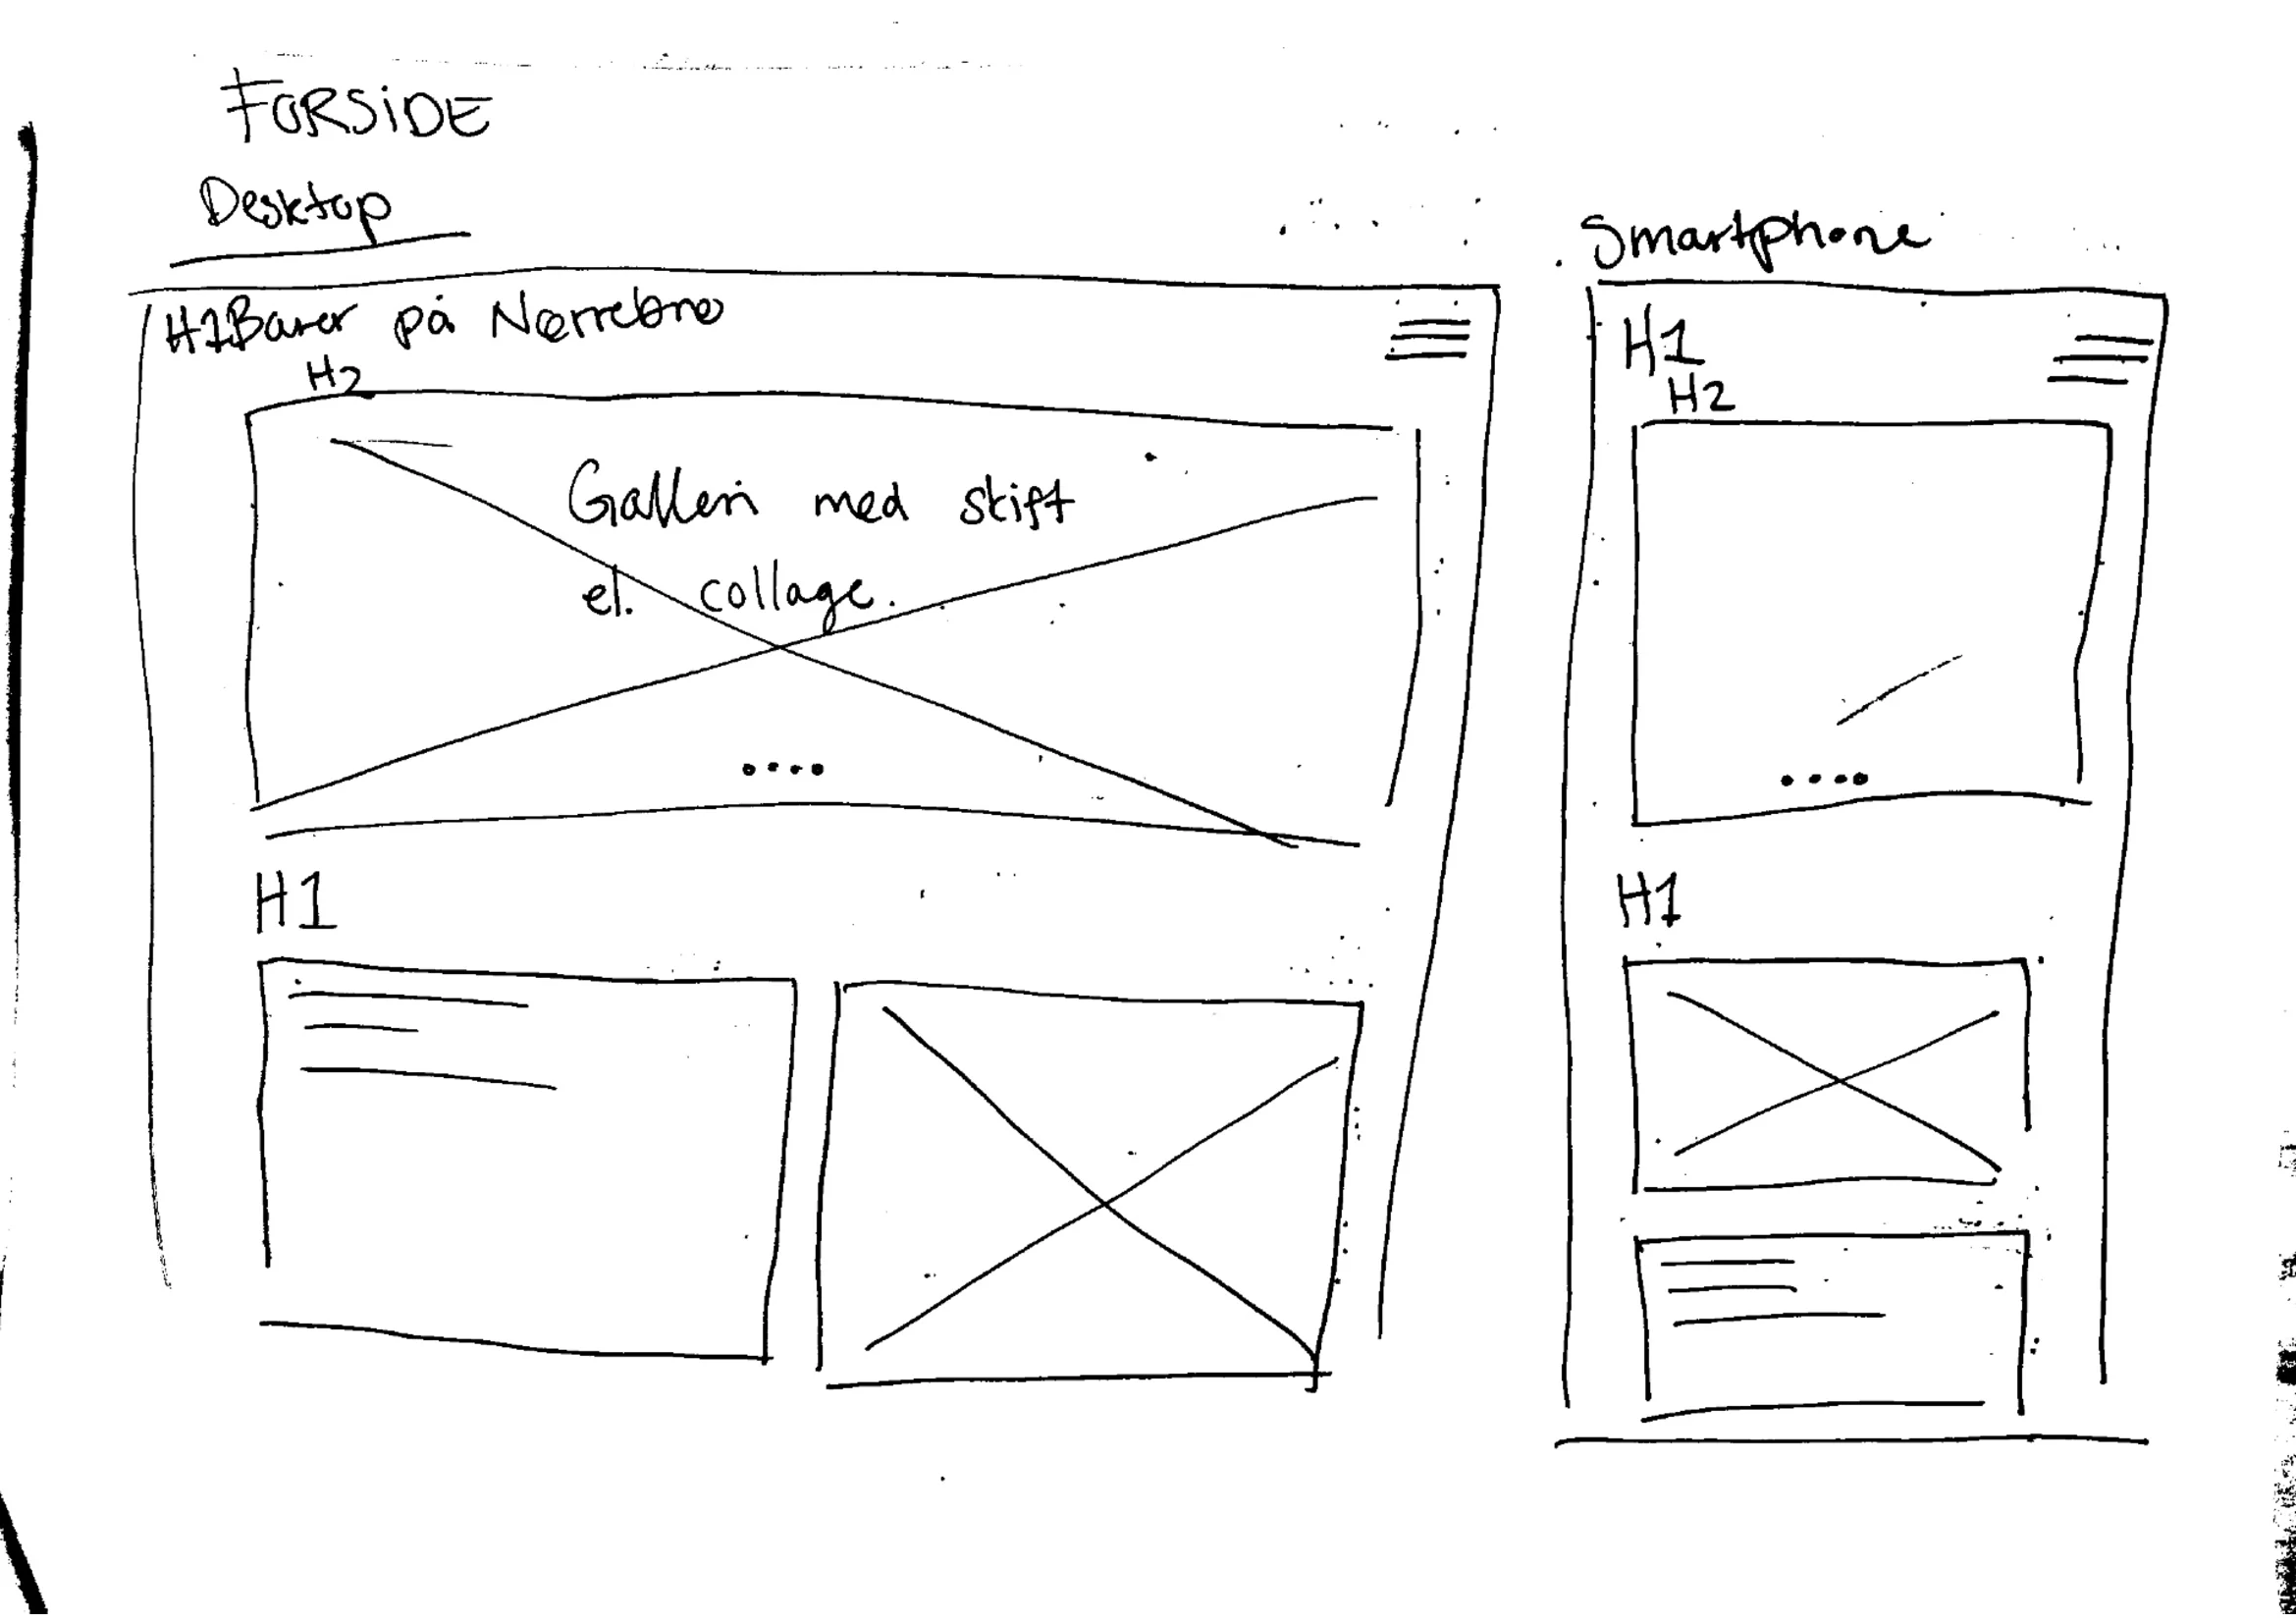 FORSIDE
Desktop
H1 Barer på Nørrebro
H2
Galleri med skift
el. collage.
H1
Smartphone
H1
H2
H1